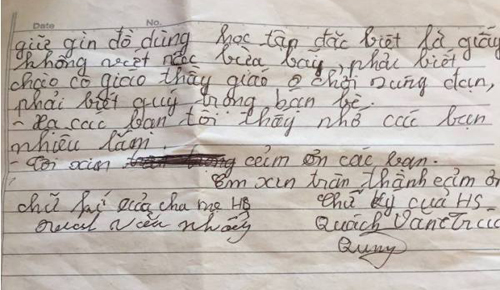 Date No.
giữ gìn đồ dùng học tập đặc biệt là giấy
không viết bừa bãy, phải biết
chào cô giáo thầy giáo chơi đạn,
phải biết quý trọng bạn bè.
- Xa các bạn tôi thấy nhớ các bạn
nhiều lắm.
- Tôi xin cảm ơn các bạn.
Em xin trân thành cảm ơn
chữ kí của cha mẹ HS
Chữ ký của HS
Quách Văn